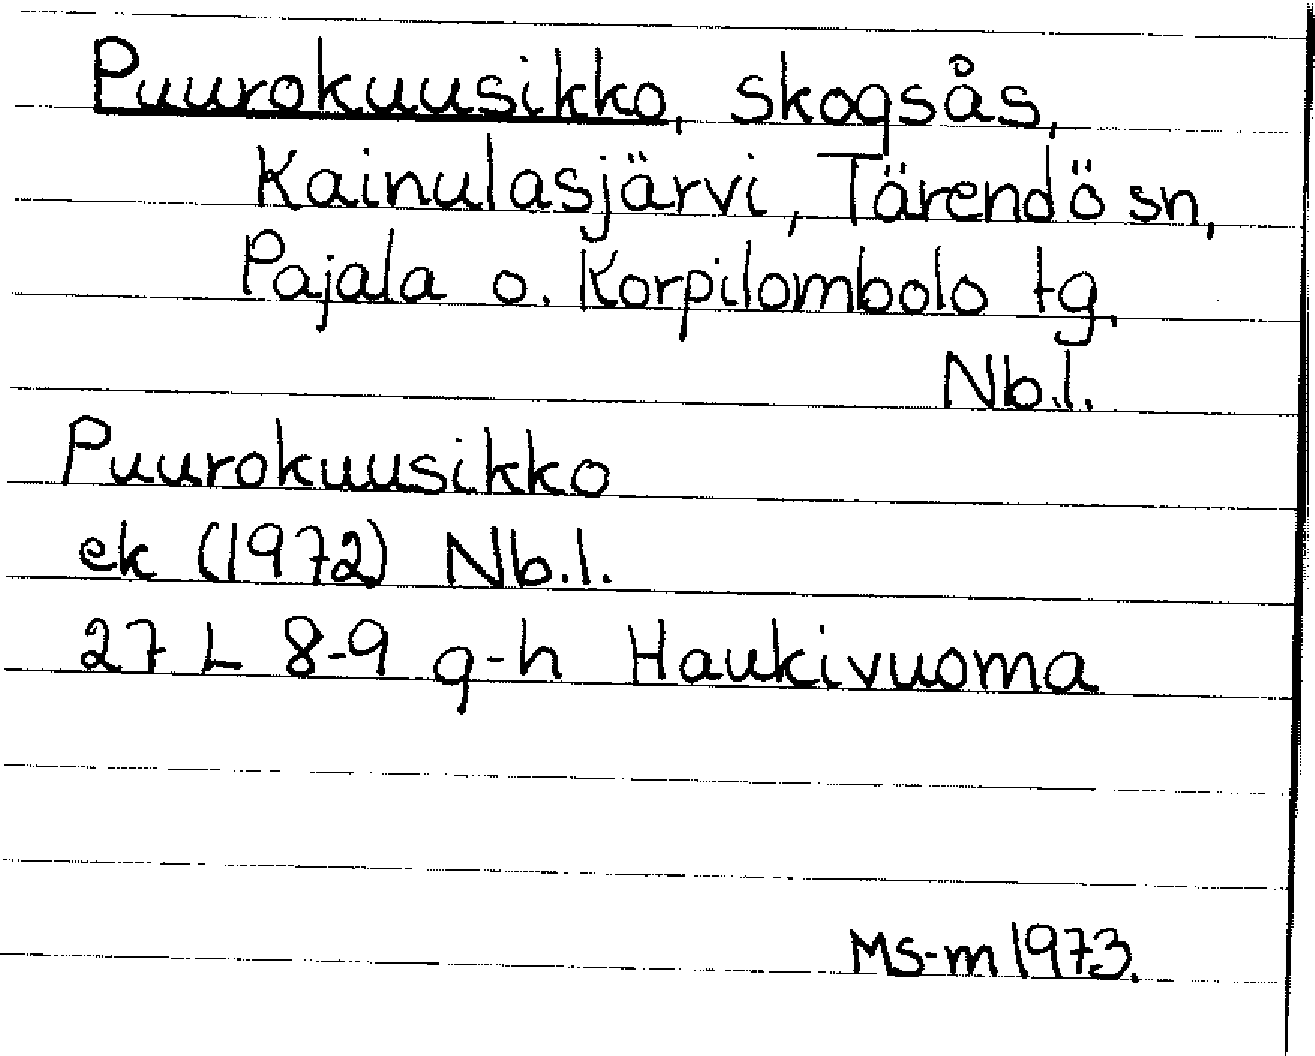 Puurokuusikko, skogsås,
Kainulasjärvi, Tärendö sn,
Pajala o. Korpilombolo tg,
Nb.l.
Puurokuusikko
ek (1972) Nb.l.
27 L 8-9 g-h Haukivuoma
MS-m 1973.